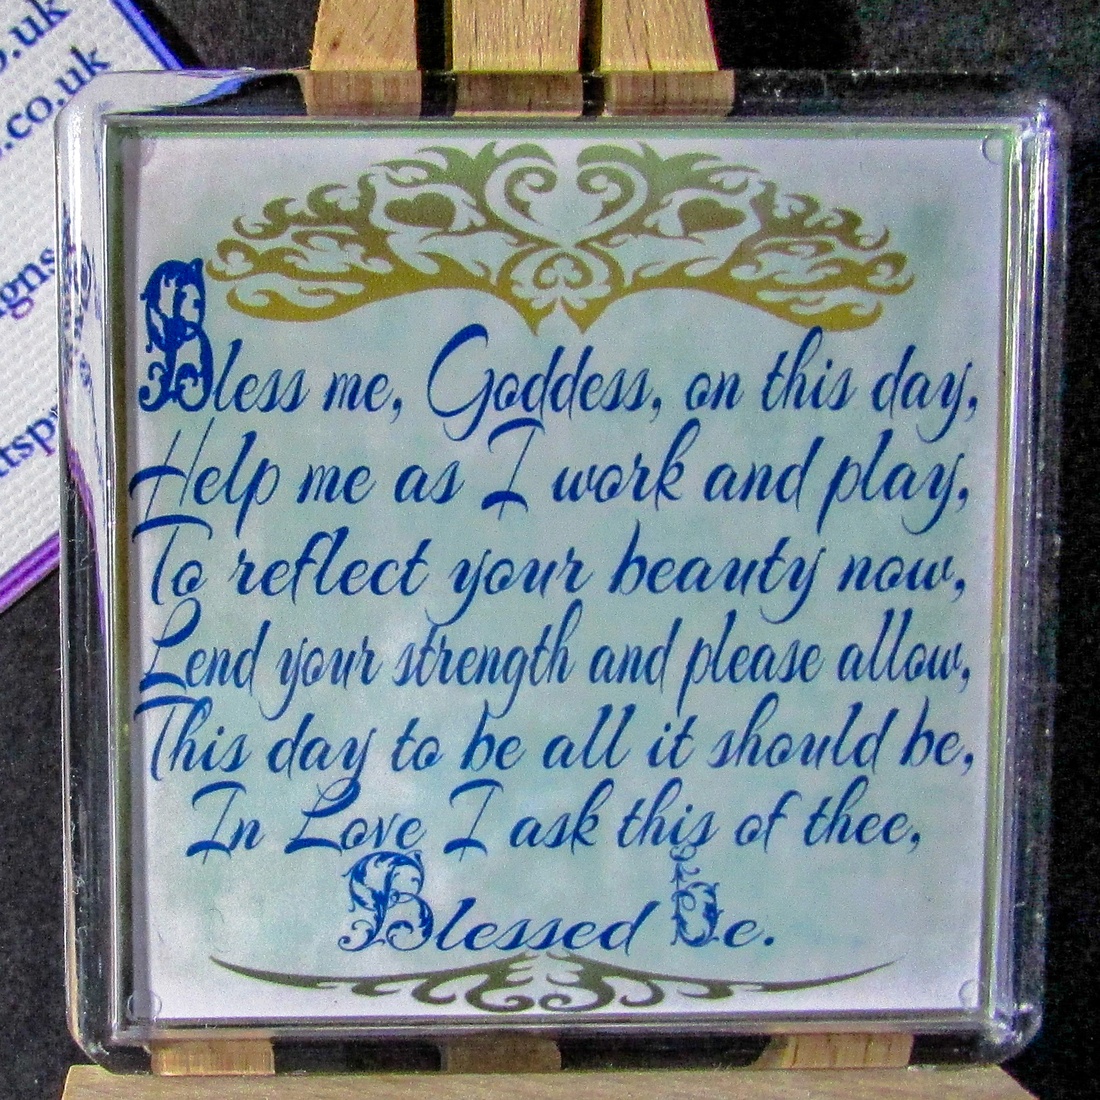 .co.uk
.co.uk
Bless me, Goddess, on this day,
Help me as I work and play,
To reflect your beauty now,
Lend your strength and please allow,
This day to be all it should be,
In Love I ask this of thee,
Blessed be.